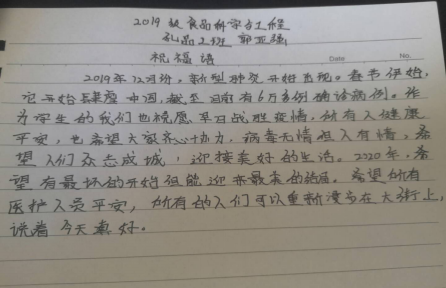 2019级食品科学与工程
乳品2班 郭亚强
祝福语
Date No.
2019年12月份，新型肺炎开始出现。春节伊始，
它开始肆虐中国，截至目前有6万多例确诊病例。作
为学生的我们也祝愿早日战胜疫情，所有人健康
平安，也希望大家齐心协力，病毒无情但人有情，希
望人们众志成城，迎接美好的生活。2020年，希
望有最坏的开始但能迎来最美的结局。希望所有
医护人员平安，所有的人们可以重新漫步在大街上，
说着今天真好。